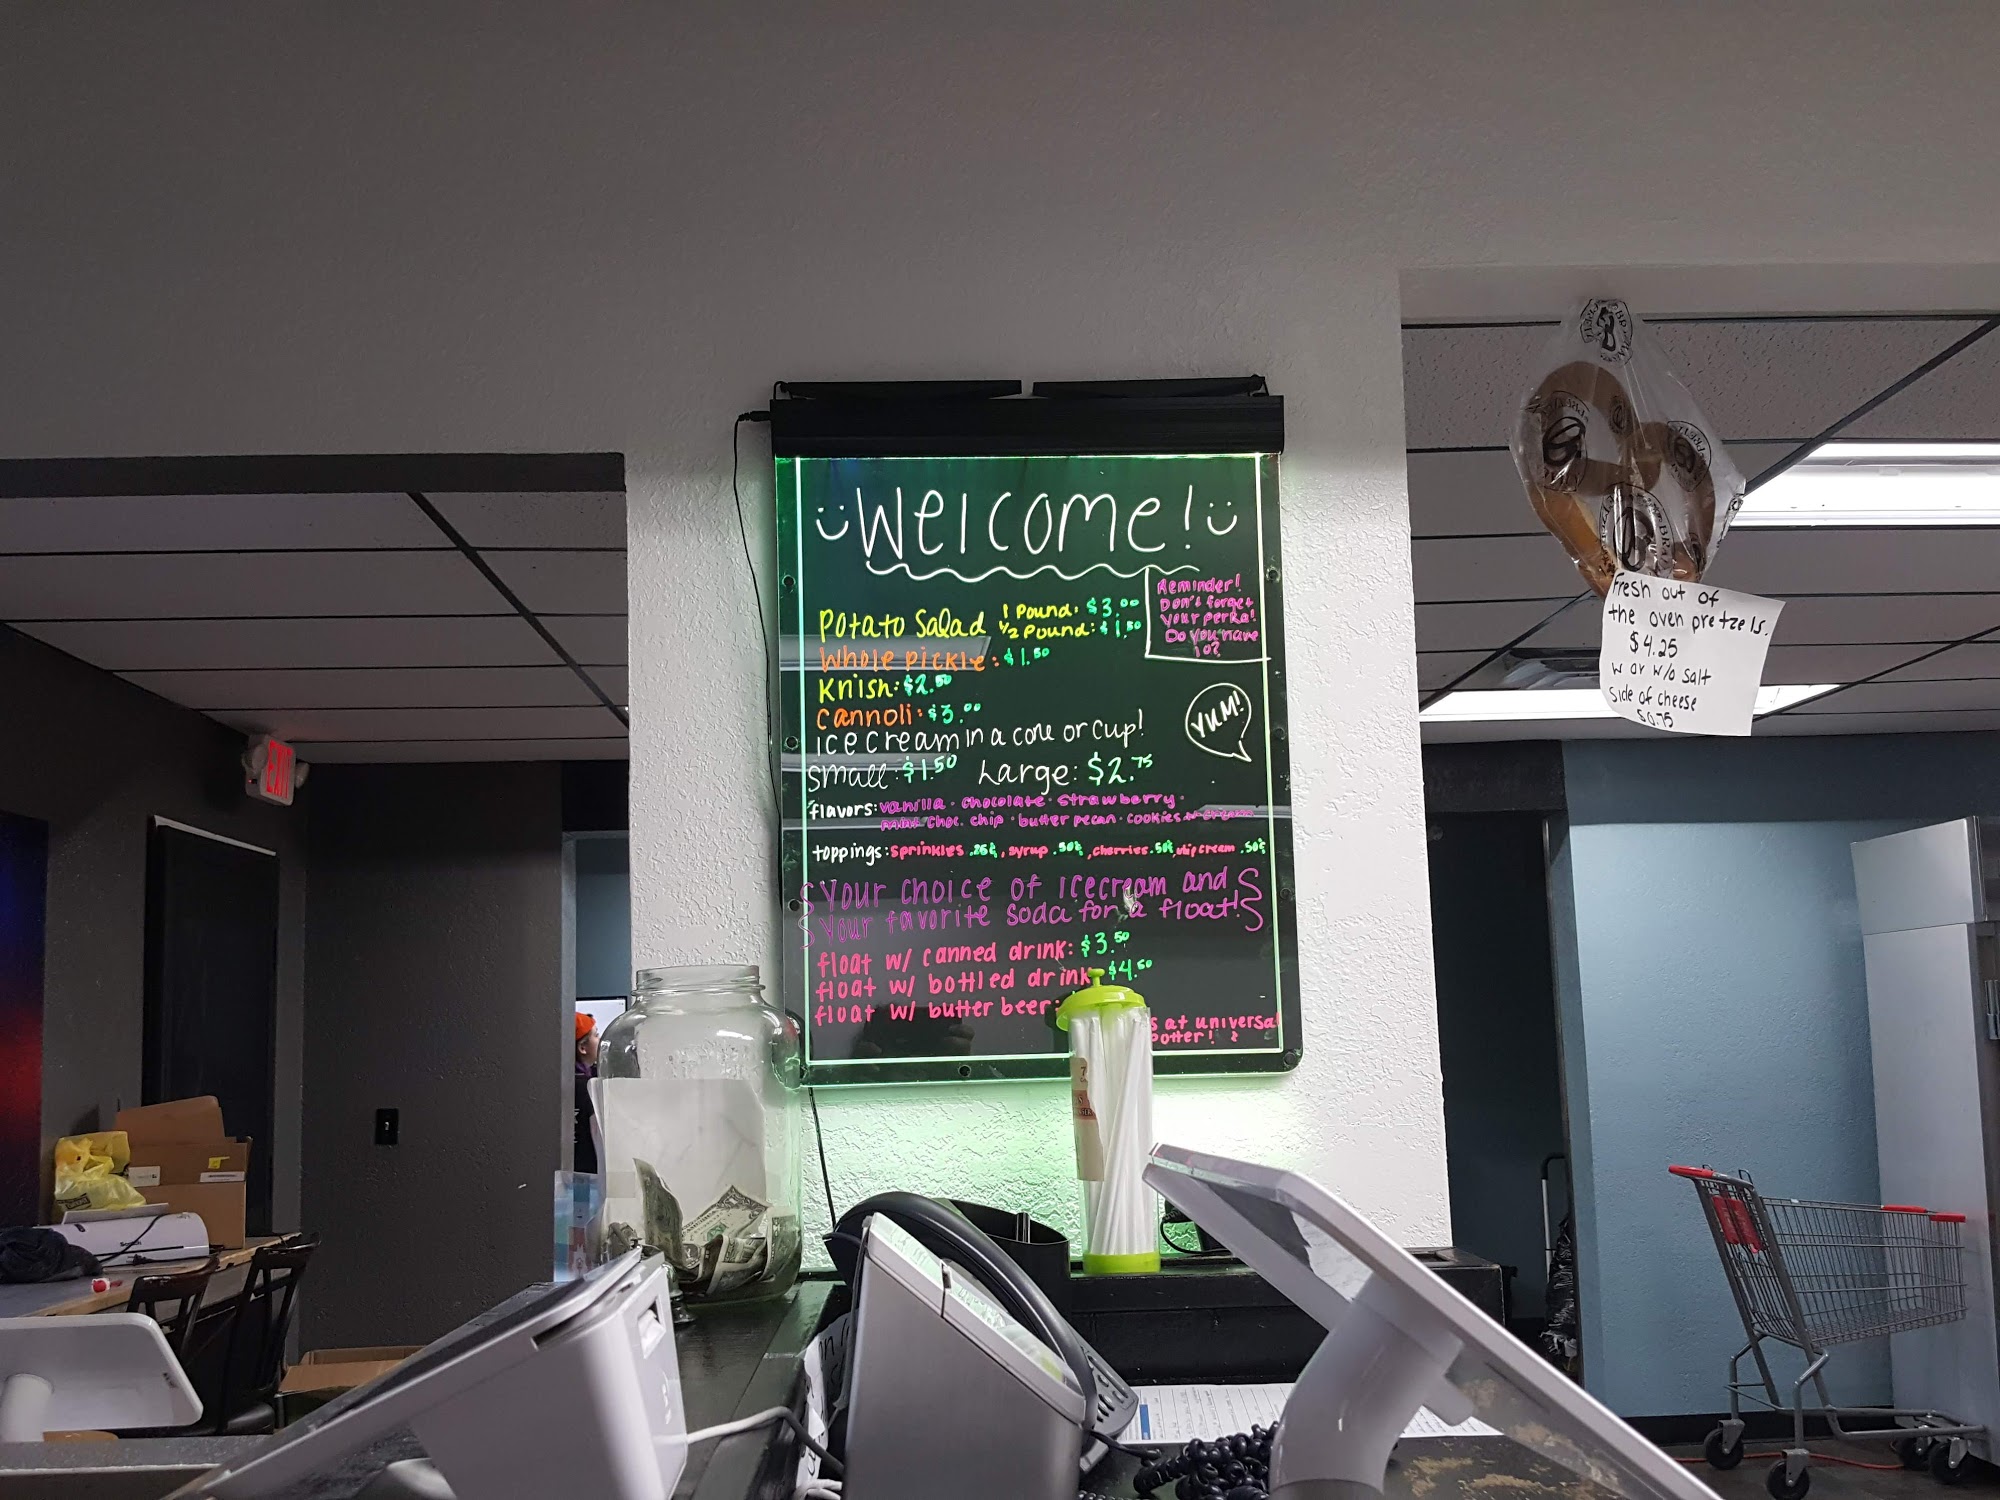 Welcome!
Reminder!
Don't forget
your perks!
Do you have
10?
Potato Salad 1 Pound: $3.00
1/2 Pound: $1.50
Whole pickle: $1.50
Knish: $2.50
Cannoli: $3.00
ice cream in a cone or cup!
Small: $1.50 Large: $2.75
YUM!
flavors: vanilla · chocolate · strawberry ·
mint choc. chip · butter pecan · cookies n cream
toppings: sprinkles .25¢, syrup .50¢, cherries .50¢, whip cream .50¢
Your choice of icecream and
Your favorite soda for a float!
float w/ canned drink: $3.50
float w/ bottled drink $4.50
float w/ butter beer:
s at universal
potter!
Fresh out of
the oven pretzels.
$4.25
w or w/o salt
side of cheese
$0.75
EXIT